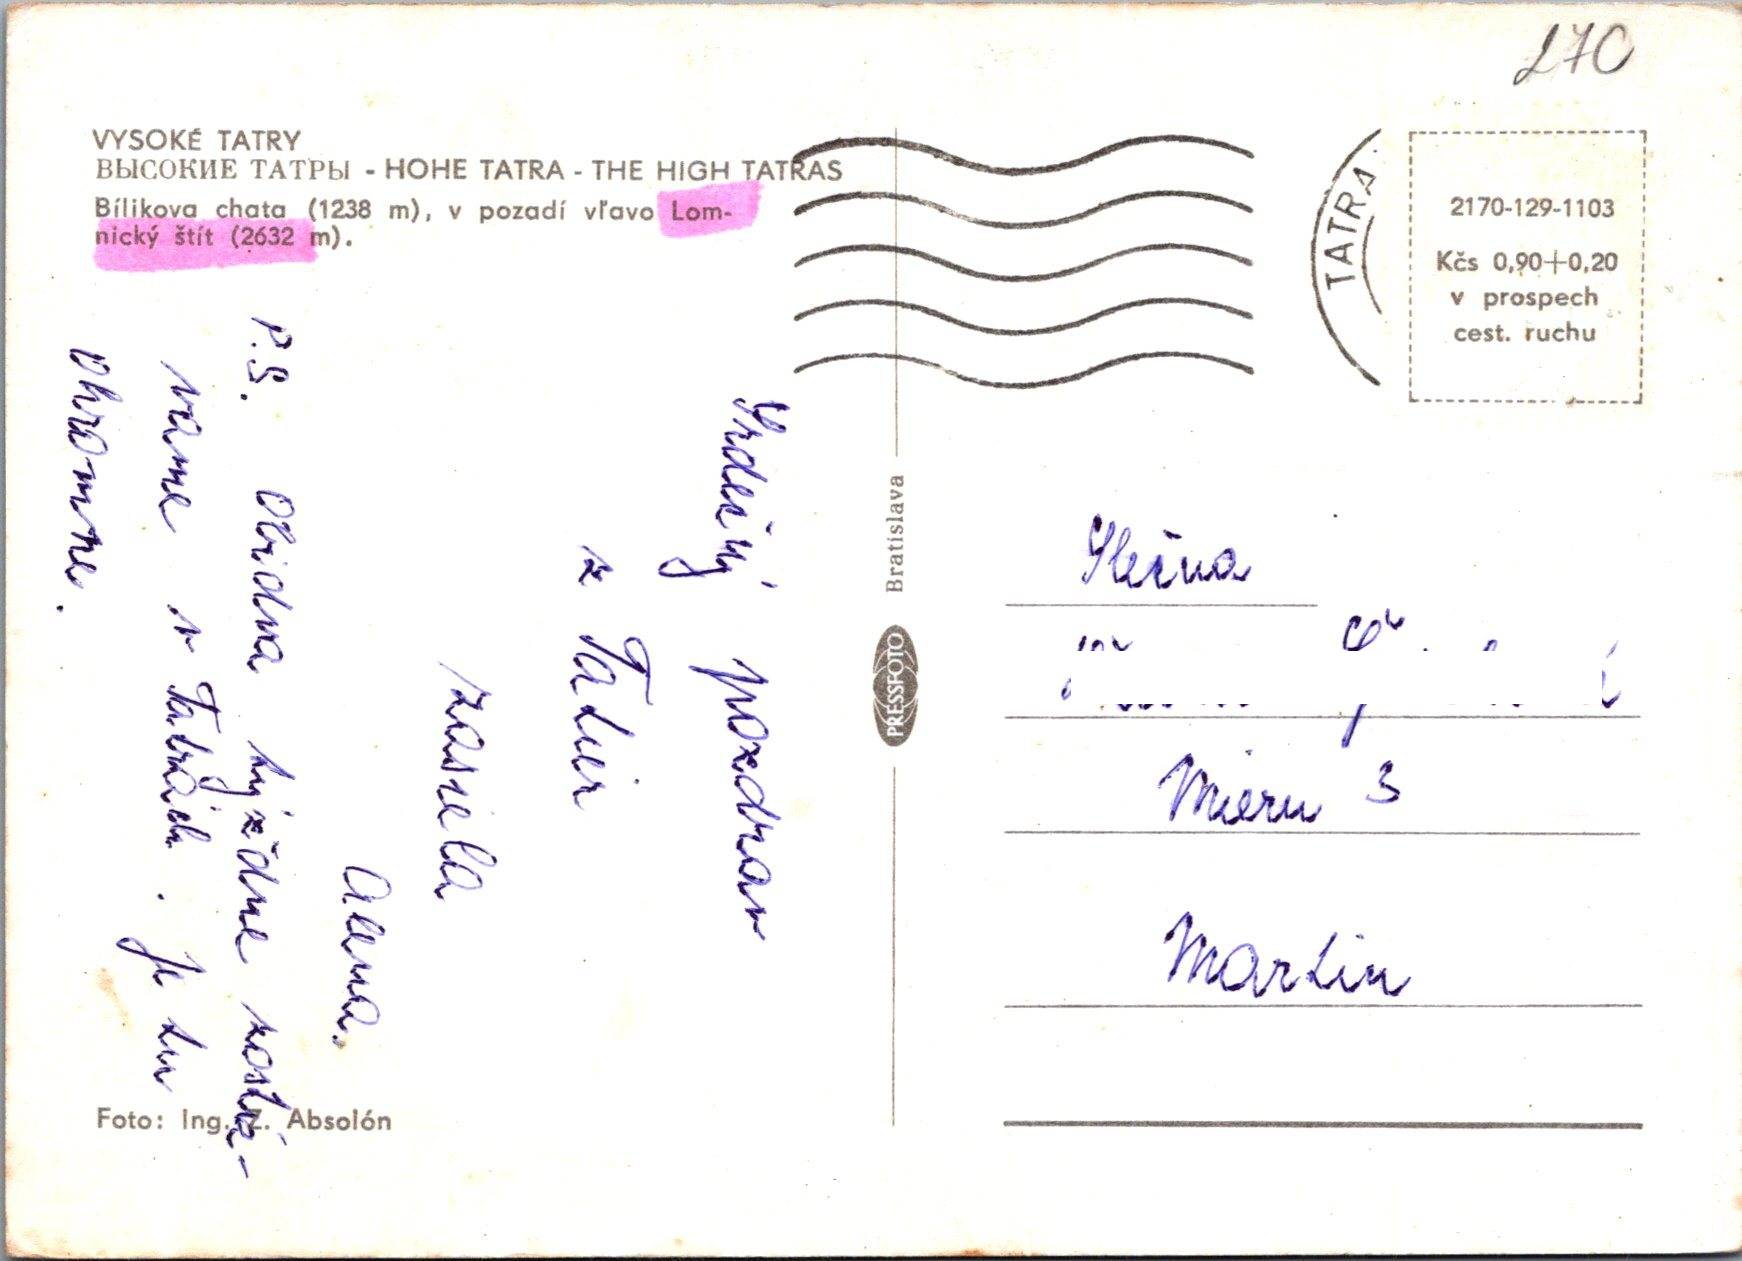 270
VYSOKÉ TATRY
ВЫСОКИЕ ТАТРЫ - HOHE TATRA - THE HIGH TATRAS
Bílikova chata (1238 m), v pozadí vľavo Lom-
nický štít (2632 m).
Srdečný pozdrav
z Tatier
zasiela
Alena.
P.S. Obidva týždne zostá-
vame v Tatrách. Je tu
ohromne.
Foto: Ing. Z. Absolón
Bratislava
PRESSFOTO
TATRA
2170-129-1103
Kčs 0,90+0,20
v prospech
cest. ruchu
Slečna
Mieru 3
Martin